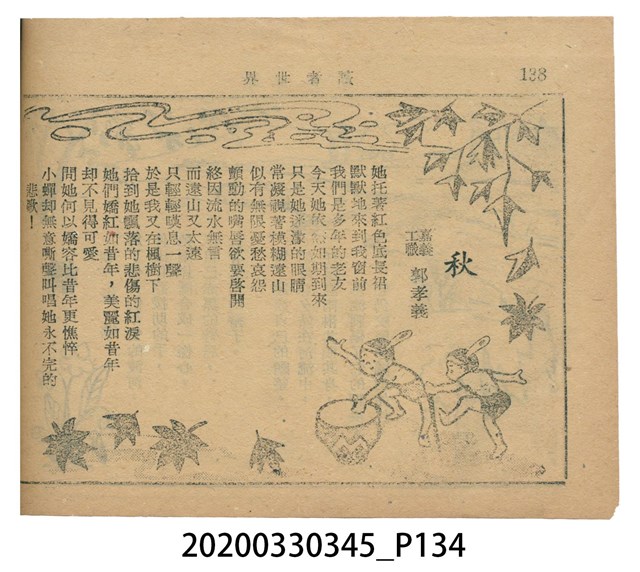 138
讀者世界
秋
嘉義
工職
郭孝義
她托著紅色底長裙
默默地來到我窗前
我們是多年的老友
今天她依然如期到來
只是她迷濛的眼睛
常凝視著模糊遠山
似有無限憂愁哀怨
顫動的嘴唇欲要啓開
終因流水無言
而遠山又太遠
只輕輕嘆息一聲
於是我又在楓樹下
拾到她飄落的悲傷的紅淚
她們嬌紅如昔年，美麗如昔年
却不見得可愛
問她何以嬌容比昔年更憔悴
小蟬却無意嘶聲叫唱她永不完的
悲歌！
20200330345_P134